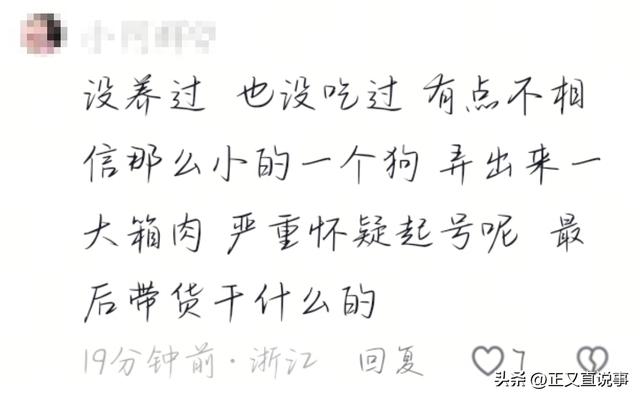 没养过 也没吃过 有点不相
信那么小的一个狗 弄出来一
大箱肉 严重怀疑起号呢 最
后带货干什么的
19分钟前·浙江 回复 7
头条 @正义直说事